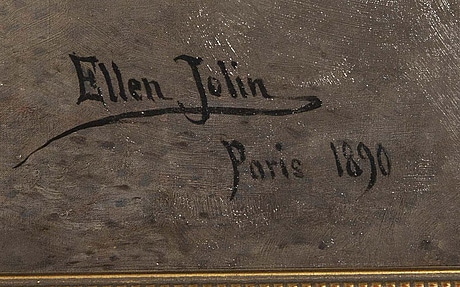 Ellen Jolin
Paris 1890